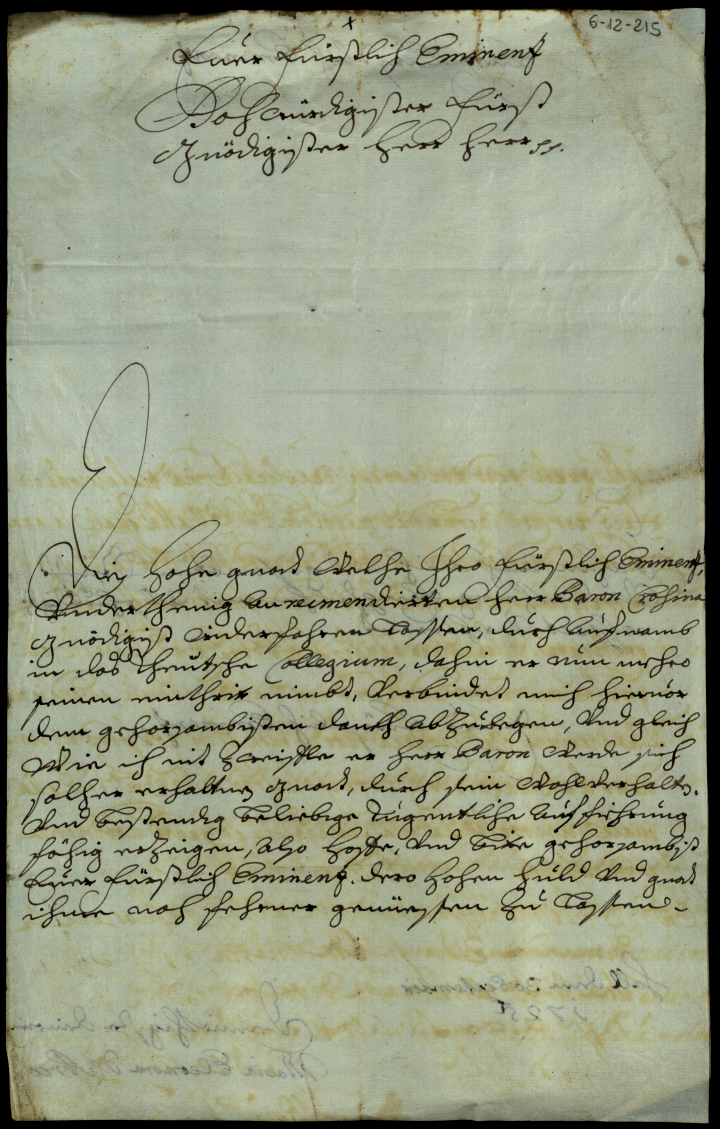 6-12-215
Euer Fürstlich Eminenz
Hochwürdigister Fürst
Gnädigister Herr Herr
Die hohe gnad Welche Ihro Fürstlich Eminenz,
Underthenig an recmendierten Herr Baron
Gnädigist widerfahren lassen, durch Aufnamb
in das Theutsche Collegium, dahin er nun mehro
seinen einthrit nimbt, Verbindet mich hiervor
dem gehorsambisten danckh abzulegen, Und gleich
Wie ich nit Zweifle er Herr Baron Werde sich
solher erhaltnen Gnad, durch sein Wohlverhalten
Und bestendig beliebige tugentlihe auffiehrung
fähig erzeigen, also hoffe, Und bitte gehorsambist
Euer Fürstlich Eminenz. dero hohen huld Und gnad
ihme noch fehrner genüessen zu lassen